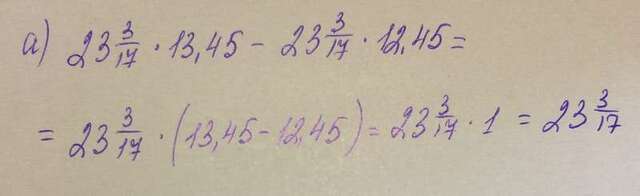 а) 23 3/17 · 13,45 − 23 3/17 · 12,45 =
= 23 3/17 · (13,45 − 12,45) = 23 3/17 · 1 = 23 3/17